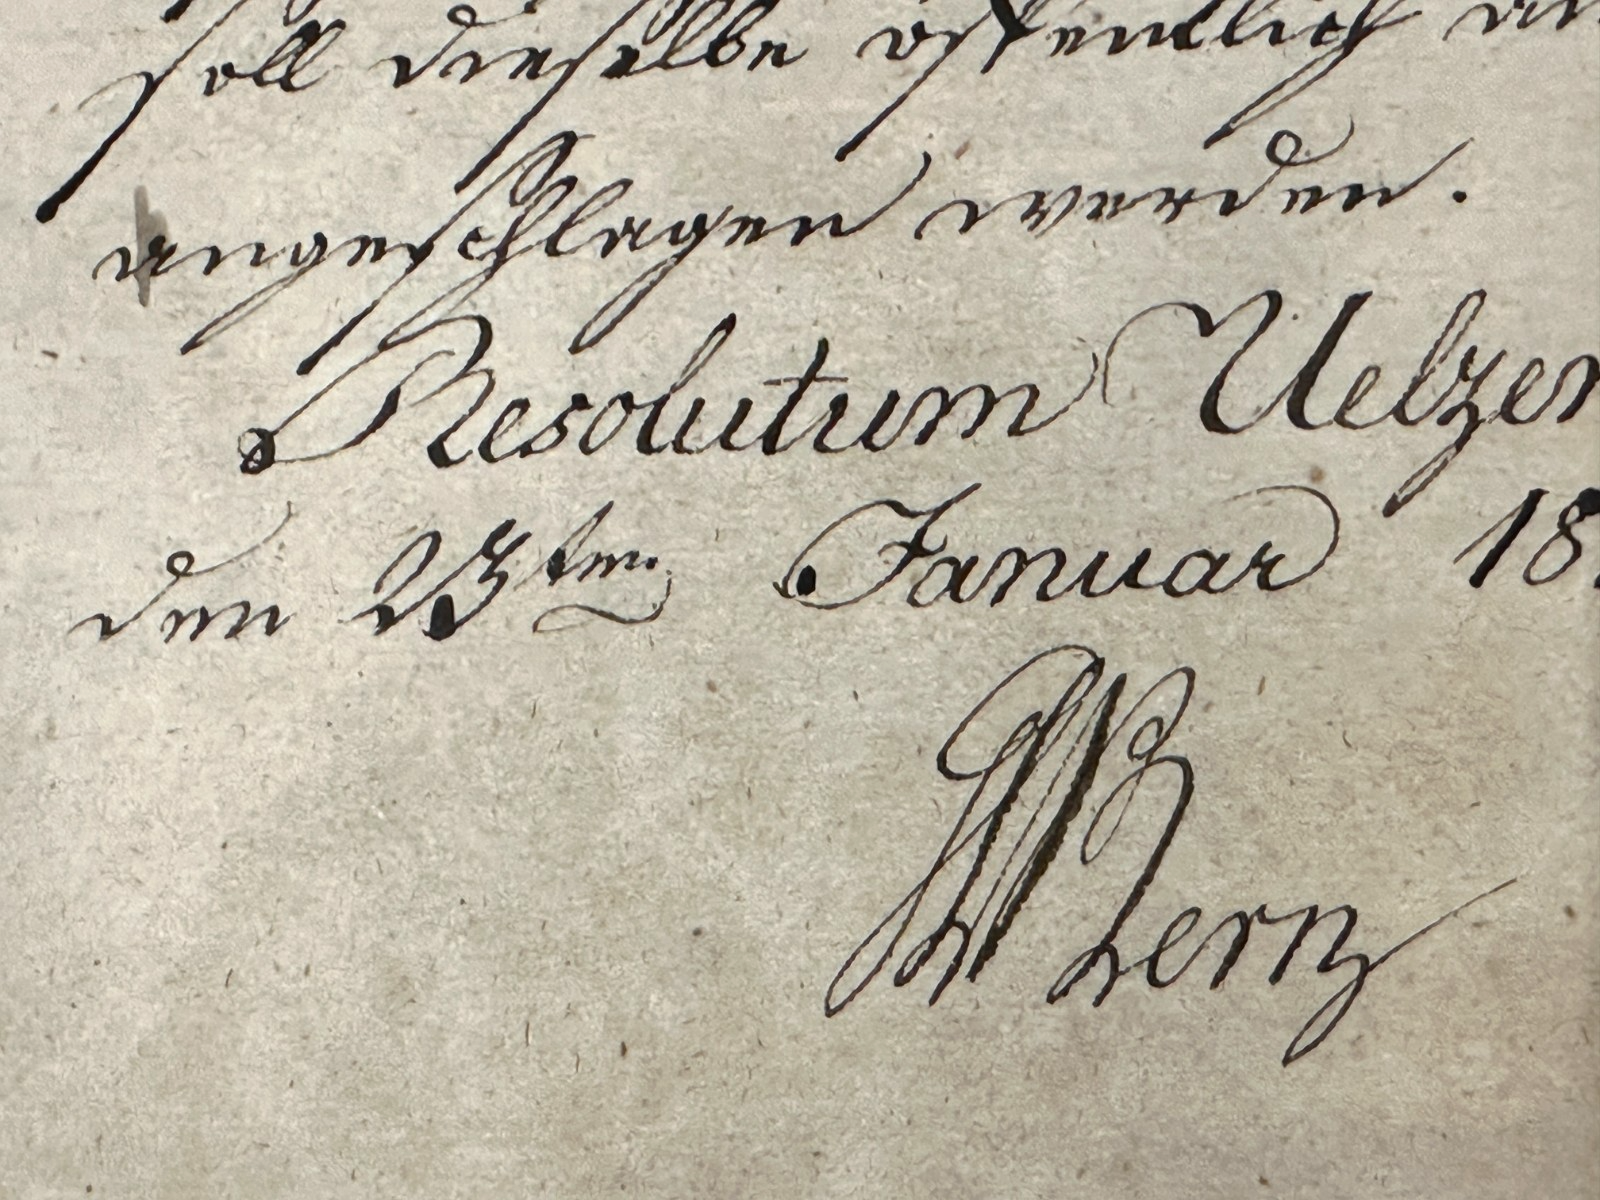 soll dieselbe öffentlich
angeschlagen werden.
Resolutum Uelzen
den 23ten Januar 18